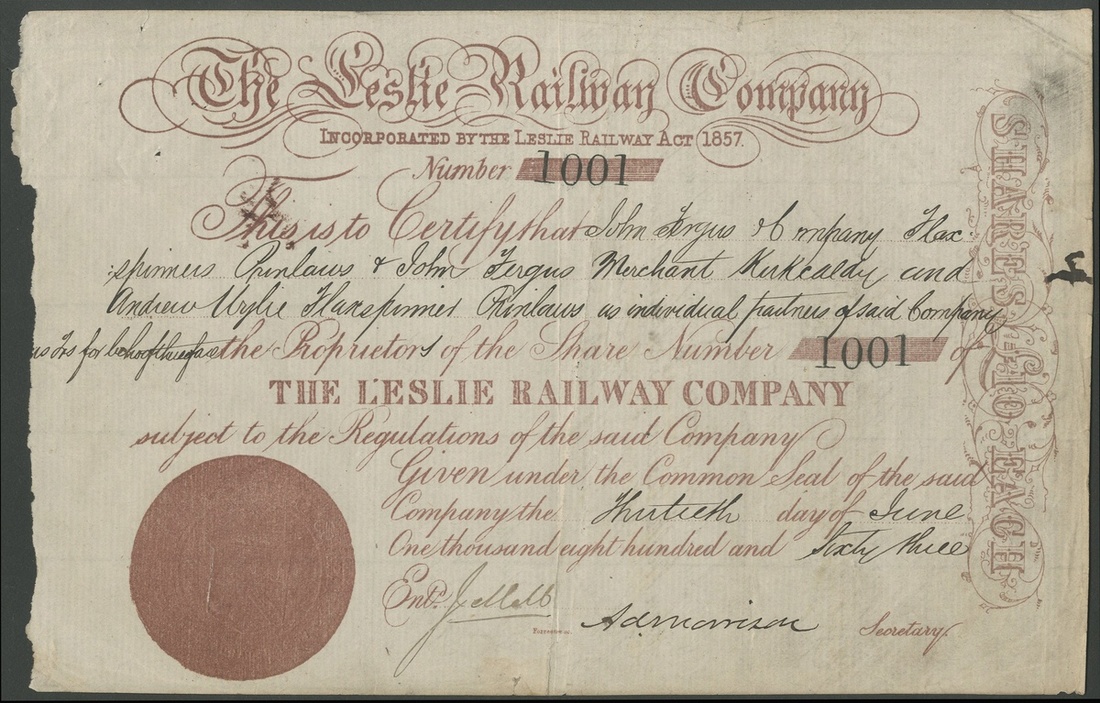 The Leslie Railway Company
INCORPORATED BY THE LESLIE RAILWAY ACT 1857.
Number 1001
This is to Certify that John Fergus & Company Flax-
-spinners Prinlaws & John Fergus Merchant Kirkcaldy and
Andrew Wylie Flaxspinner Prinlaws as individual partners of said Company
for the Proprietors of the Share Number 1001 of
THE LESLIE RAILWAY COMPANY
subject to the Regulations of the said Company
Given under the Common Seal of the said
Company the Thirtieth day of June
One thousand eight hundred and Sixty three
Entd.
Secretary.
SHARES £10 EACH